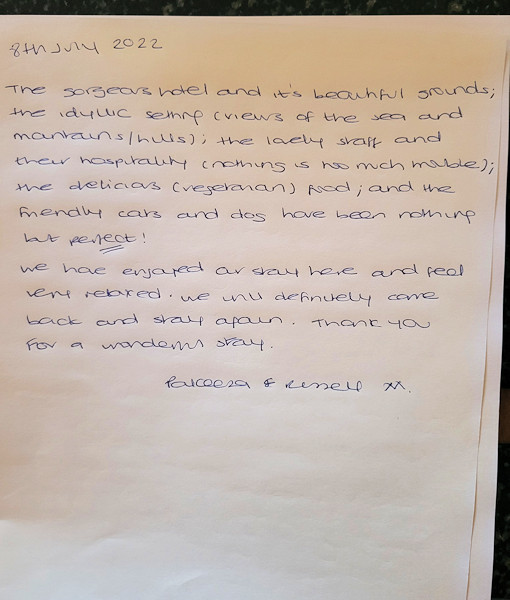 8th July 2022
The gorgeous hotel and it's beautiful grounds;
the idyllic setting (views of the sea and
mountains/hills); the lovely staff and
their hospitality (nothing is too much trouble);
the delicious (vegetarian) food; and the
friendly cats and dog have been nothing
but perfect!
We have enjoyed our stay here and feel
very relaxed. We will definitely come
back and stay again. Thank you
for a wonderful stay.
& Russell xx.